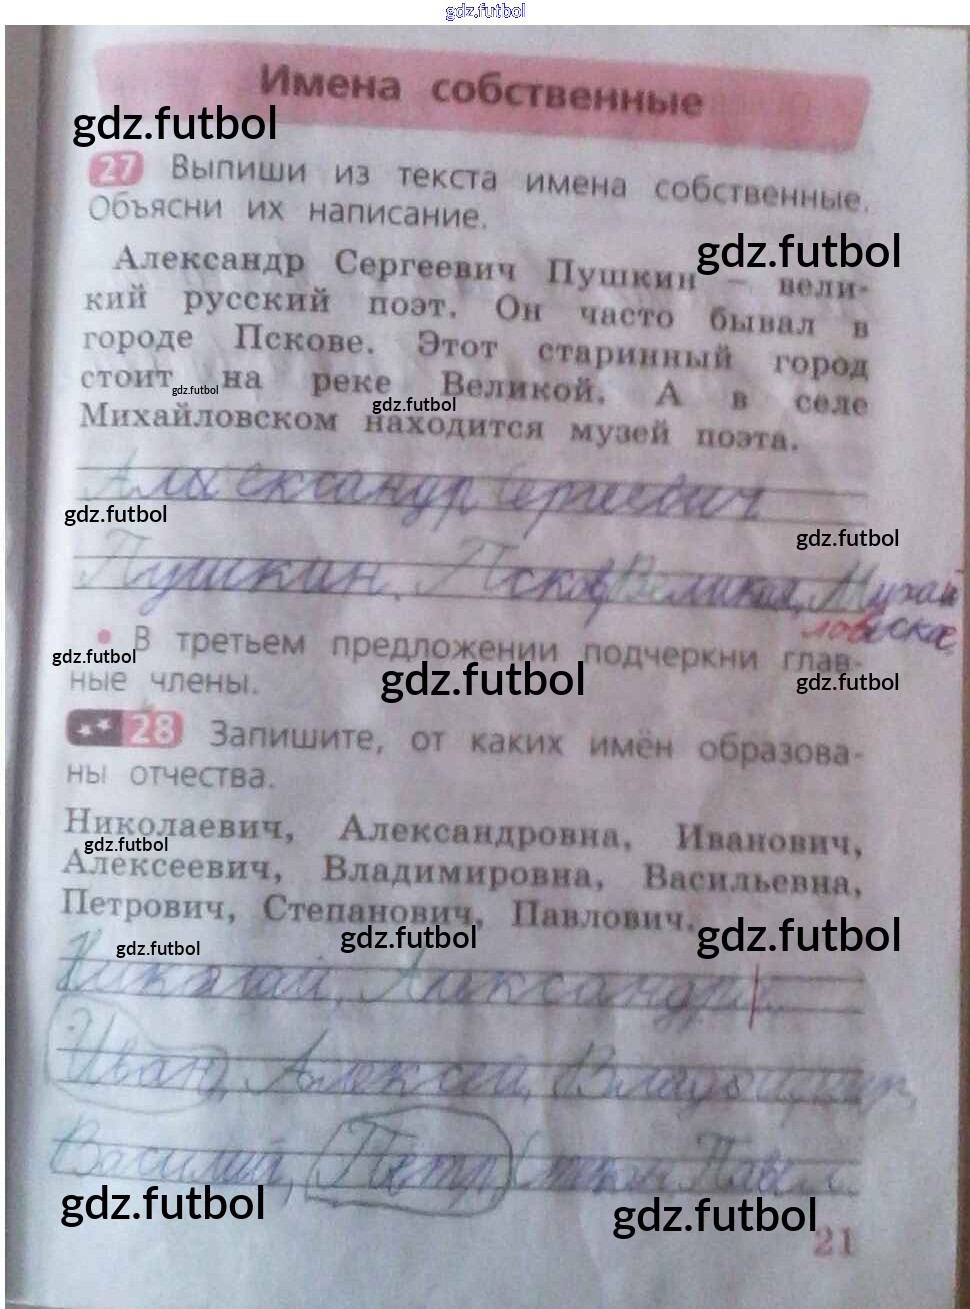 gdz.futbol
Имена собственные
gdz.futbol
27 Выпиши из текста имена собственные.
Объясни их написание.
gdz.futbol
Александр Сергеевич Пушкин – вели-
кий русский поэт. Он часто бывал в
городе Пскове. Этот старинный город
стоит на реке Великой. А в селе
gdz.futbol
gdz.futbol
Михайловском находится музей поэта.
Александр Сергеевич
gdz.futbol
gdz.futbol
Пушкин, Псков, Великая, Михай
ловское.
• В третьем предложении подчеркни глав-
gdz.futbol
gdz.futbol
gdz.futbol
ные члены.
28 Запишите, от каких имён образова-
ны отчества.
Николаевич, Александровна, Иванович,
gdz.futbol
Алексеевич, Владимировна, Васильевна,
Петрович, Степанович, Павлович.
gdz.futbol
gdz.futbol
gdz.futbol
Николай, Александр
Иван, Алексей, Владимир,
Василий, Петр, Степан, Павел.
gdz.futbol
gdz.futbol
21